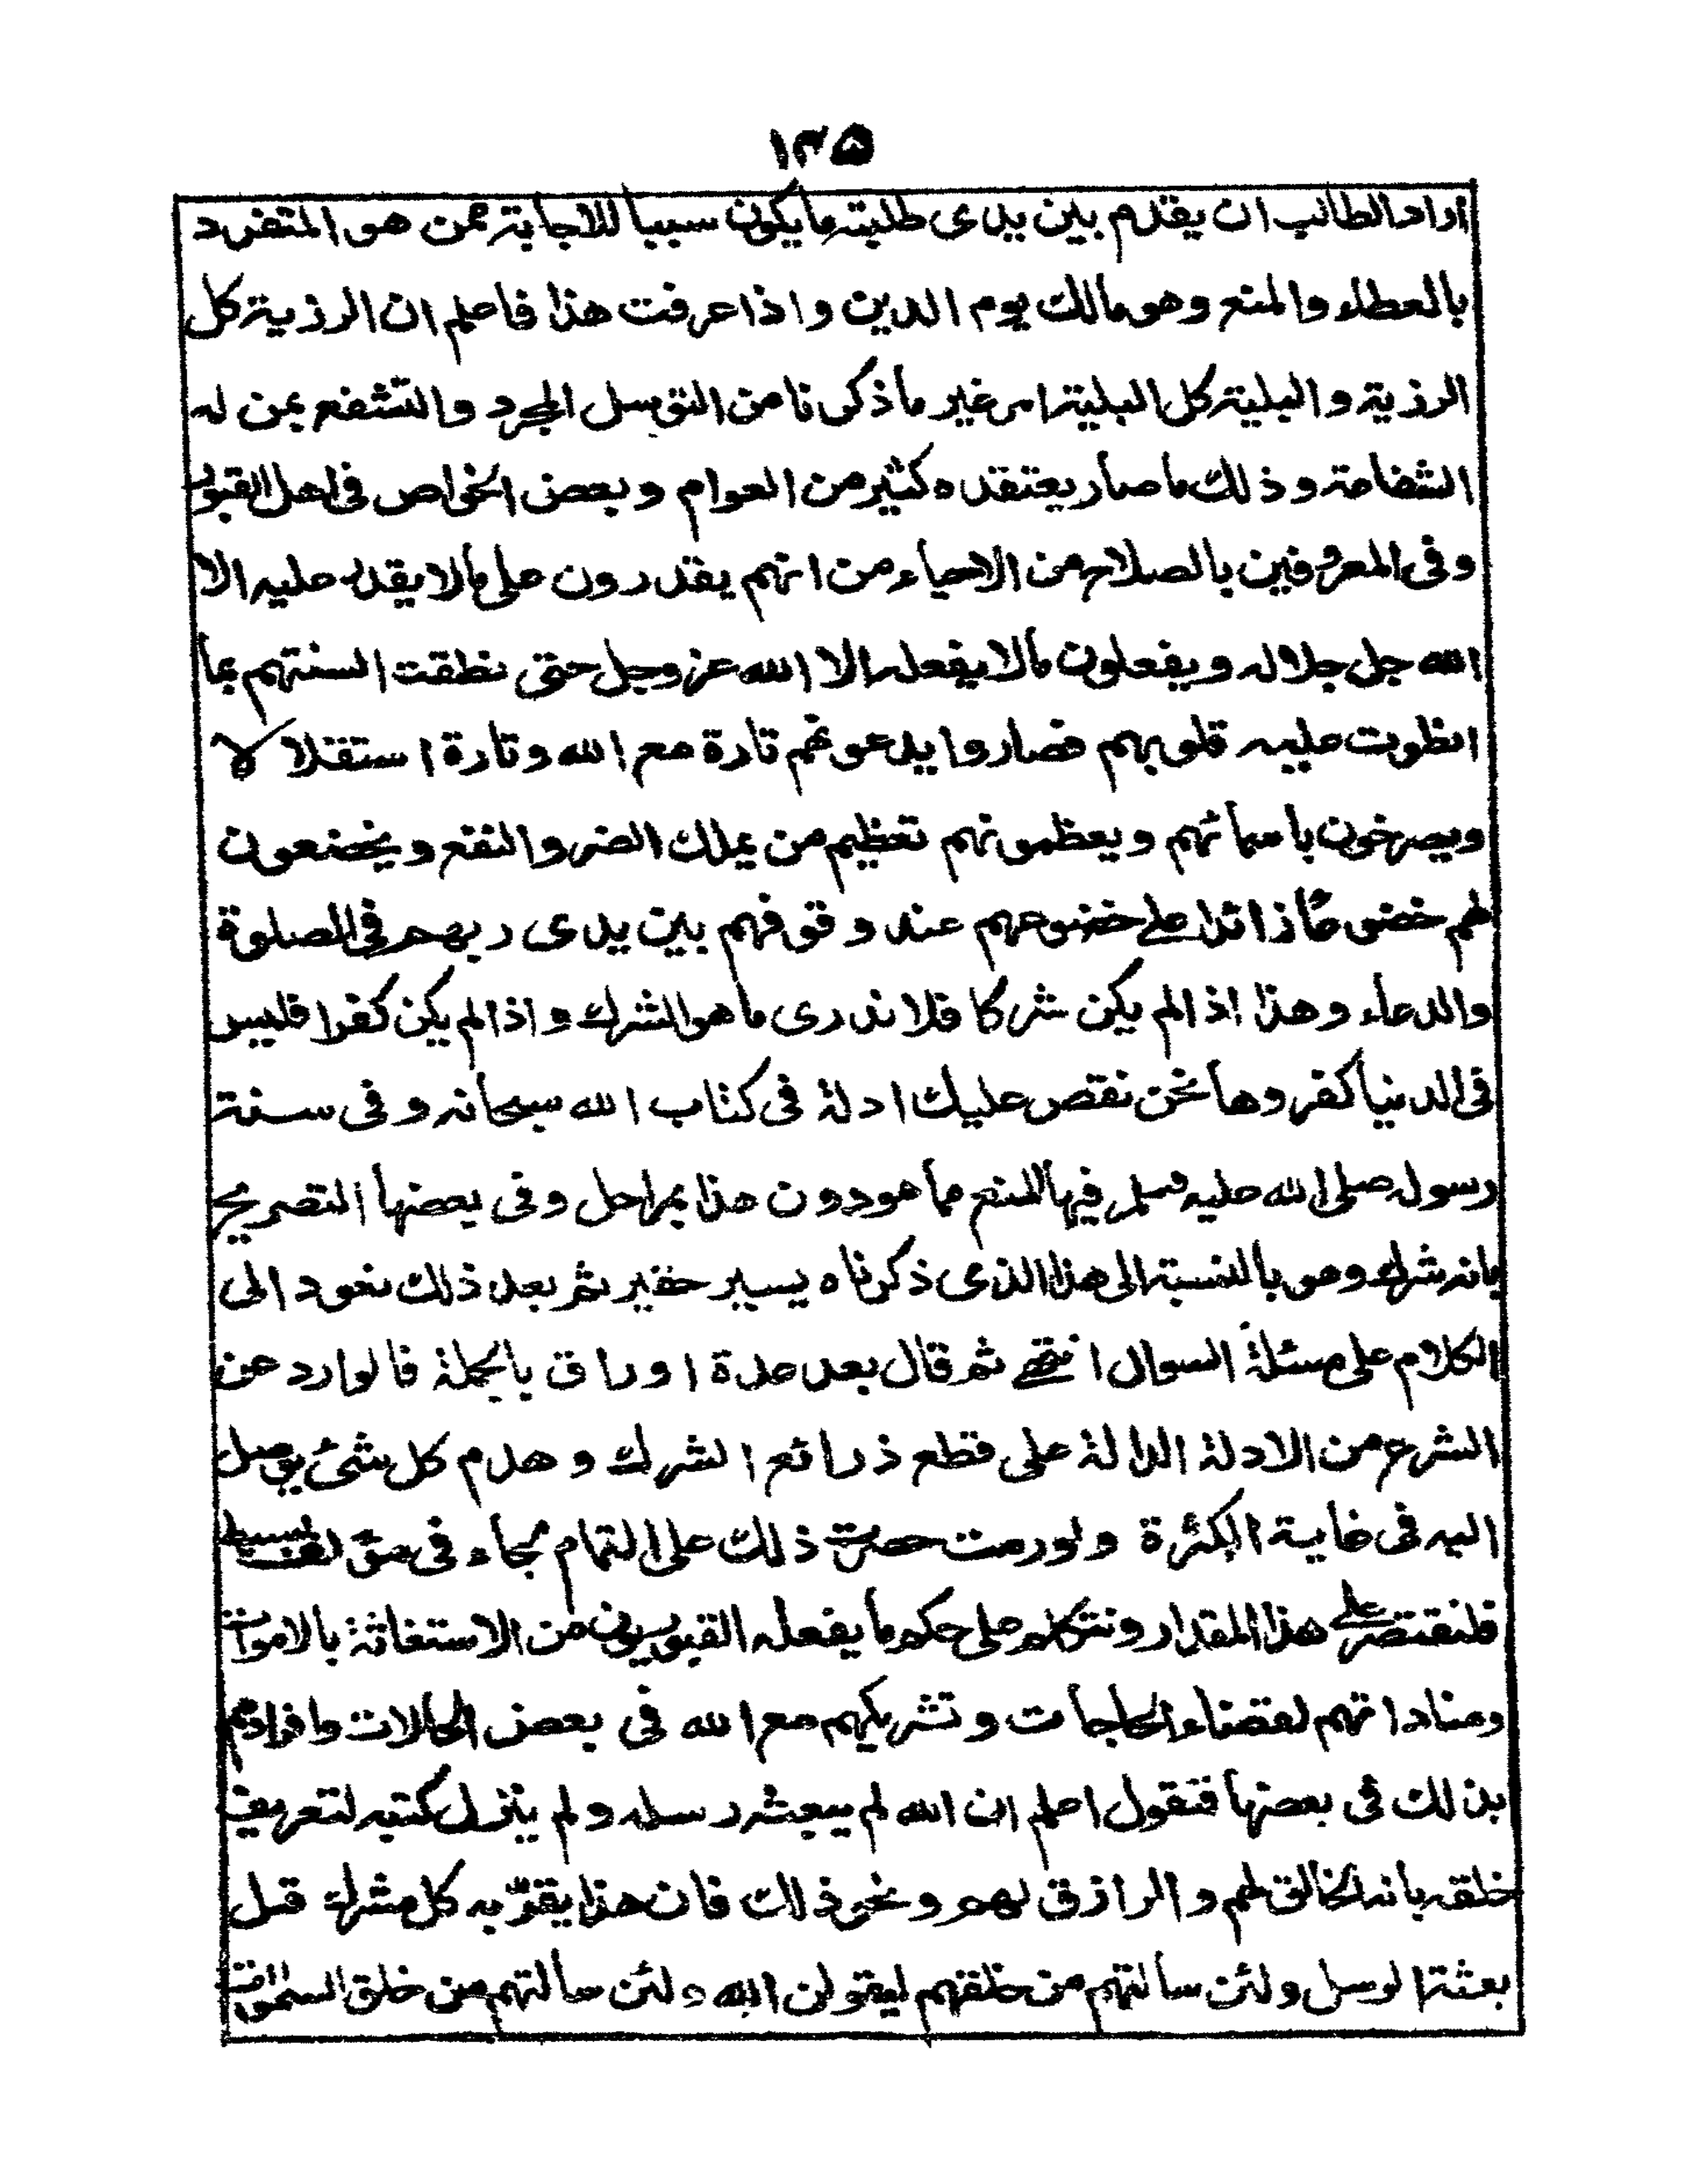 ۱۳۵
اراد الطالب ان يقدم بين يدى طلبته ما يكون سببا للاجابة ممن هو المتفرد
بالعطاء والمنع وهو مالك يوم الدين واذا عرفت هذا فاعلم ان الرزية كل
الرزية والبلية كل البلية امر غير ما ذكرنا من التوسل المجرد والتشفع بمن له
الشفاعة وذلك ما صار يعتقده كثير من العوام وبعض الخواص فى اهل القبور
وفى المعروفين بالصلاح من الاحياء من انهم يقدرون على ما لا يقدر عليه الا
الله جل جلاله ويفعلون ما لا يفعله الا الله عز وجل حتى نطقت السنتهم بما
انطوت عليه قلوبهم فصاروا يدعونهم تارة مع الله وتارة استقلالا
ويصرخون باسمائهم ويعظمونهم تعظيم من يملك الضر والنفع ويخضعون
لهم خضوعا زائدا على خضوعهم عند وقوفهم بين يدى ربهم فى الصلوة
والدعاء وهذا اذا لم يكن شركا فلا ندرى ما هو الشرك واذا لم يكن كفرا فليس
فى الدنيا كفر وها نحن نقص عليك ادلة فى كتاب الله سبحانه وفى سنة
رسوله صلى الله عليه وسلم فيها المنع مما هو دون هذا بمراحل وفى بعضها التصريح
بانه شرك وهو بالنسبة الى هذا الذى ذكرناه يسير حقير ثم بعد ذلك نعود الى
الكلام على مسئلة السوال انتهى ثم قال بعد عدة اوراق بالجملة فالوارد عن
الشرع من الادلة الدالة على قطع ذرائع الشرك وهدم كل شئ يوصل
اليه فى غاية الكثرة ولو رمت حصر ذلك على التمام لجاء فى مؤلف بسيط
فلنقتصر على هذا المقدار ونتكلم على حكم ما يفعله القبوريون من الاستغاثة بالاموات
ومناداتهم لقضاء الحاجات وتشريكهم مع الله فى بعض الحالات وافرادهم
بذلك فى بعضها فنقول اعلم ان الله لم يبعث رسله ولم ينزل كتبه لتعريف
خلقه بانه الخالق لهم والرازق لهم ونحو ذلك فان هذا يقر به كل مشرك قبل
بعثة الرسل ولئن سالتهم من خلقهم ليقولن الله ولئن سالتهم من خلق السموات